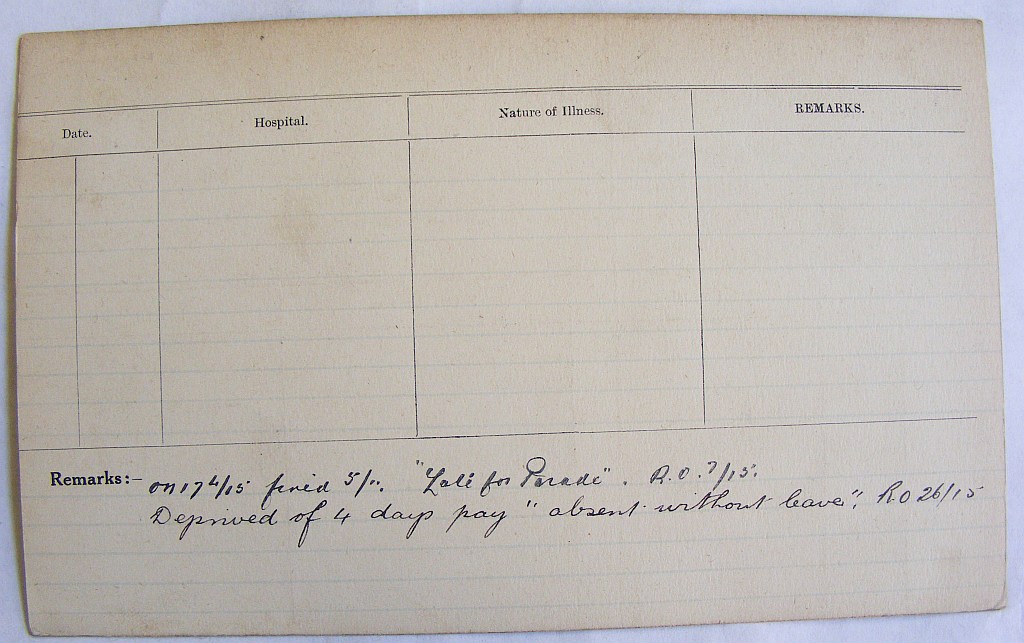 Date. Hospital. Nature of Illness. REMARKS.
Remarks:- on 17 4/15 fined 5/". "Late for Parade". R.O. 7/15.
Deprived of 4 days pay "absent without leave". R.O 26/15